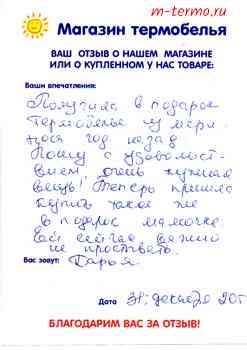 m-termo.ru
Магазин термобелья
ВАШ ОТЗЫВ О НАШЕМ МАГАЗИНЕ
ИЛИ О КУПЛЕННОМ У НАС ТОВАРЕ:
Ваши впечатления:
Получила в подарок
Термобелье из мери-
носа год назад
Ношу с удовольст-
вием, очень нужная
вещь! Теперь пришла
купить такое же
в подарок мамочке
Ей сейчас важно
не простывать.
Вас зовут: Дарья
Дата декабря 20
БЛАГОДАРИМ ВАС ЗА ОТЗЫВ!